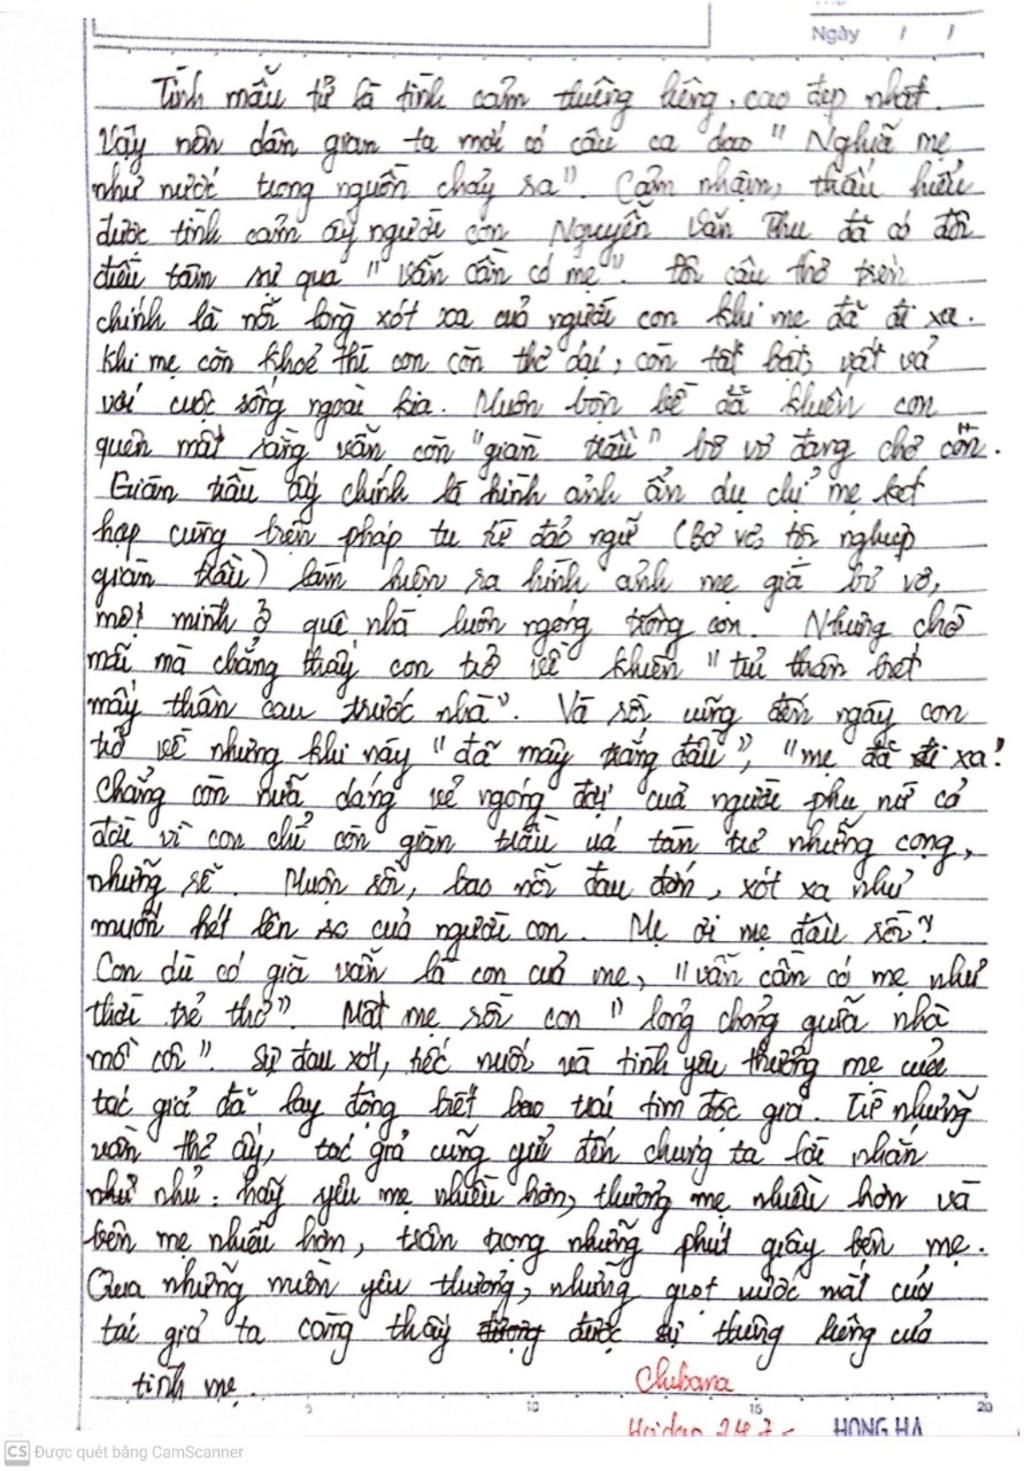 Ngày / /
Tình mẫu tử là tình cảm thiêng liêng, cao đẹp nhất.
Vậy nên dân gian ta mới có câu ca dao " Nghĩa mẹ
như nước trong nguồn chảy ra". Cảm nhận, thấu hiểu
được tình cảm ấy người con Nguyễn Văn Thu đã có đôi
điều tâm sự qua " Vẫn cần có mẹ". câu thơ trên
chính là nỗi lòng xót xa của người con khi mẹ đã đi xa.
Khi mẹ còn khoẻ thì con còn thơ dại, còn tất bật, vất vả
với cuộc sống ngoài kia. Muôn bộn bề đã khiến con
quên mất rằng vẫn còn "giàn trầu" bơ vơ đang chờ
Giàn trầu ấy chính là hình ảnh ẩn dụ chỉ mẹ kết
hợp cùng biện pháp tu từ đảo ngữ (Bơ vơ, tội nghiệp
giàn trầu) làm hiện ra hình ảnh mẹ già bơ vơ,
một mình ở quê nhà luôn ngóng trông con. Nhưng chờ
mãi mà chẳng thấy con trở về khiến " tủi thân
mấy thân cau trước nhà". Và rồi cũng đến ngày con
trở về nhưng khi này "đã mây trắng đầu", "mẹ đã đi xa".
Chẳng còn nữa dáng vẻ ngóng đợi của người phụ nữ cả
đời vì con chỉ còn giàn trầu úa tàn trơ những cọng,
những rễ. Muộn rồi, bao nỗi đau đớn, xót xa như
muốn hét lên của người con. Mẹ ơi mẹ đâu rồi?
Con dù có già vẫn là con của mẹ, "vẫn cần có mẹ như
thời trẻ thơ". Mất mẹ rồi con " lóng chóng giữa nhà
mồ côi". Sự đau xót, tiếc nuối và tình yêu thương mẹ của
tác giả đã lay động biết bao trái tim độc giả. Từ những
vần thơ ấy, tác giả cũng gửi đến chúng ta lời nhắn
như nhủ: hãy yêu mẹ nhiều hơn, thương mẹ nhiều hơn và
bên mẹ nhiều hơn, trân trọng những phút giây bên mẹ.
Qua những muôn yêu thương, những giọt nước mắt của
tác giả ta càng thấy được sự thiêng liêng của
tình mẹ.
Chubana
5 10 15 20
HONG HA
CS Được quét bằng CamScanner